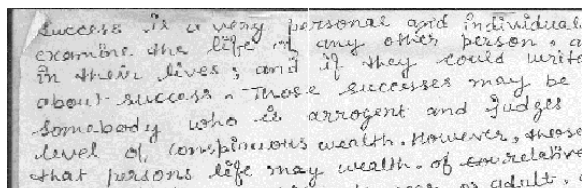 success is a very personal and individual
examine the life of any other person, a
in their lives; and if they could write
about success. Those successes may be
somabody who is arrogent and judges
level of conspinuous wealth. However, those
that persons life may wealth. of relative
or adult,